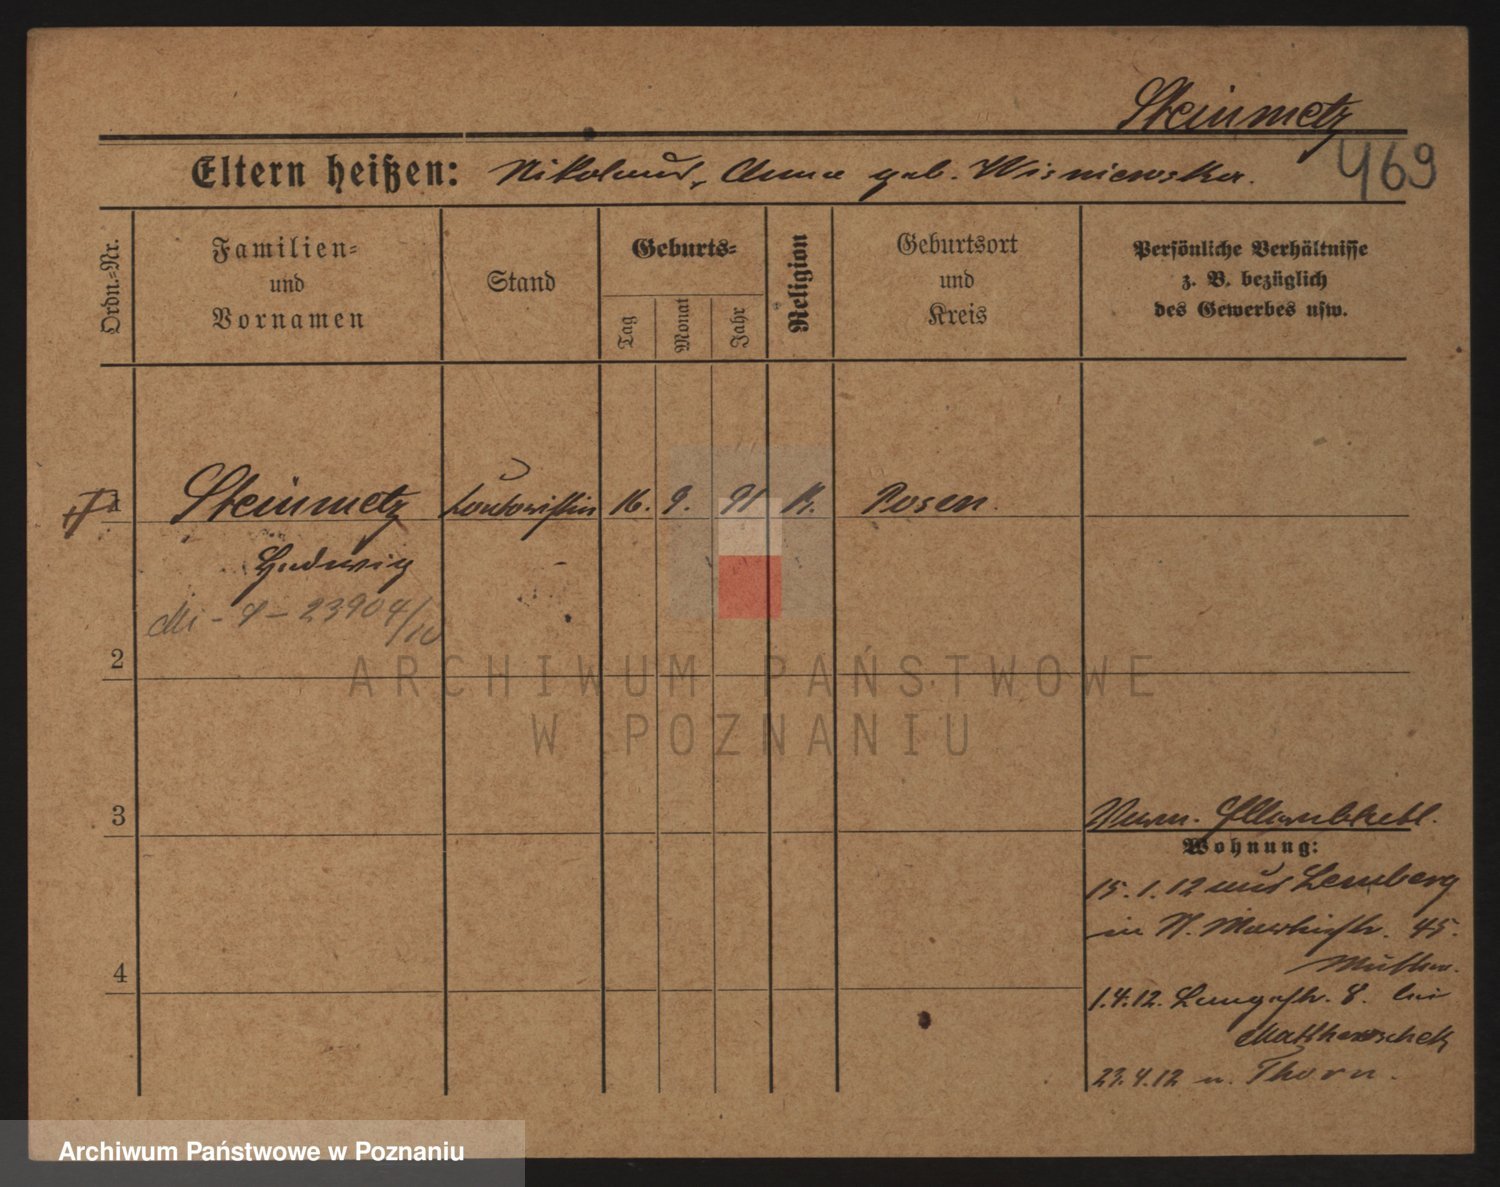 Steinmetz
Eltern heißen: Nikolaus, Anna geb. Wisniewska.
469
Ordn.-Nr.
Familien-
und
Vornamen
Stand
Geburts-
Tag
Monat
Jahr
Religion
Geburtsort
und
Kreis
Persönliche Verhältnisse
z. B. bezüglich
des Gewerbes usw.
1 Steinmetz Kontoristin 16. 9. 91 k. Posen.
Hedwig
23904/10
2
ARCHIWUM PAŃSTWOWE
W POZNANIU
3
Wohnung:
15.1.12 aus Lemberg
in St. Martinstr. 45.
Mutter.
4
1.4.12. Langestr. 8. bei
23.4.12 n. Thorn.
Archiwum Państwowe w Poznaniu